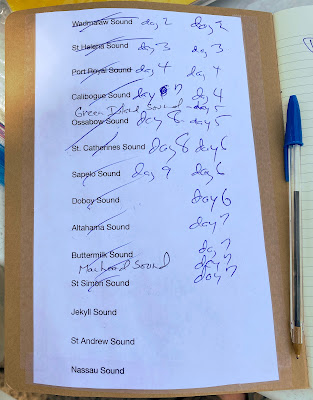 Wadmalaw Sound day 2 day 2
St Helena Sound day 3 day 3
Port Royal Sound day 4 day 4
Calibogue Sound day 7 day 4
Green Island Sound day 5
Ossabow Sound day 8 day 5
St. Catherines Sound day 8 day 6
Sapelo Sound day 9 day 6
Doboy Sound day 6
Altahama Sound day 7
Buttermilk Sound day 7
Sound day 7
St Simon Sound day 7
Jekyll Sound
St Andrew Sound
Nassau Sound